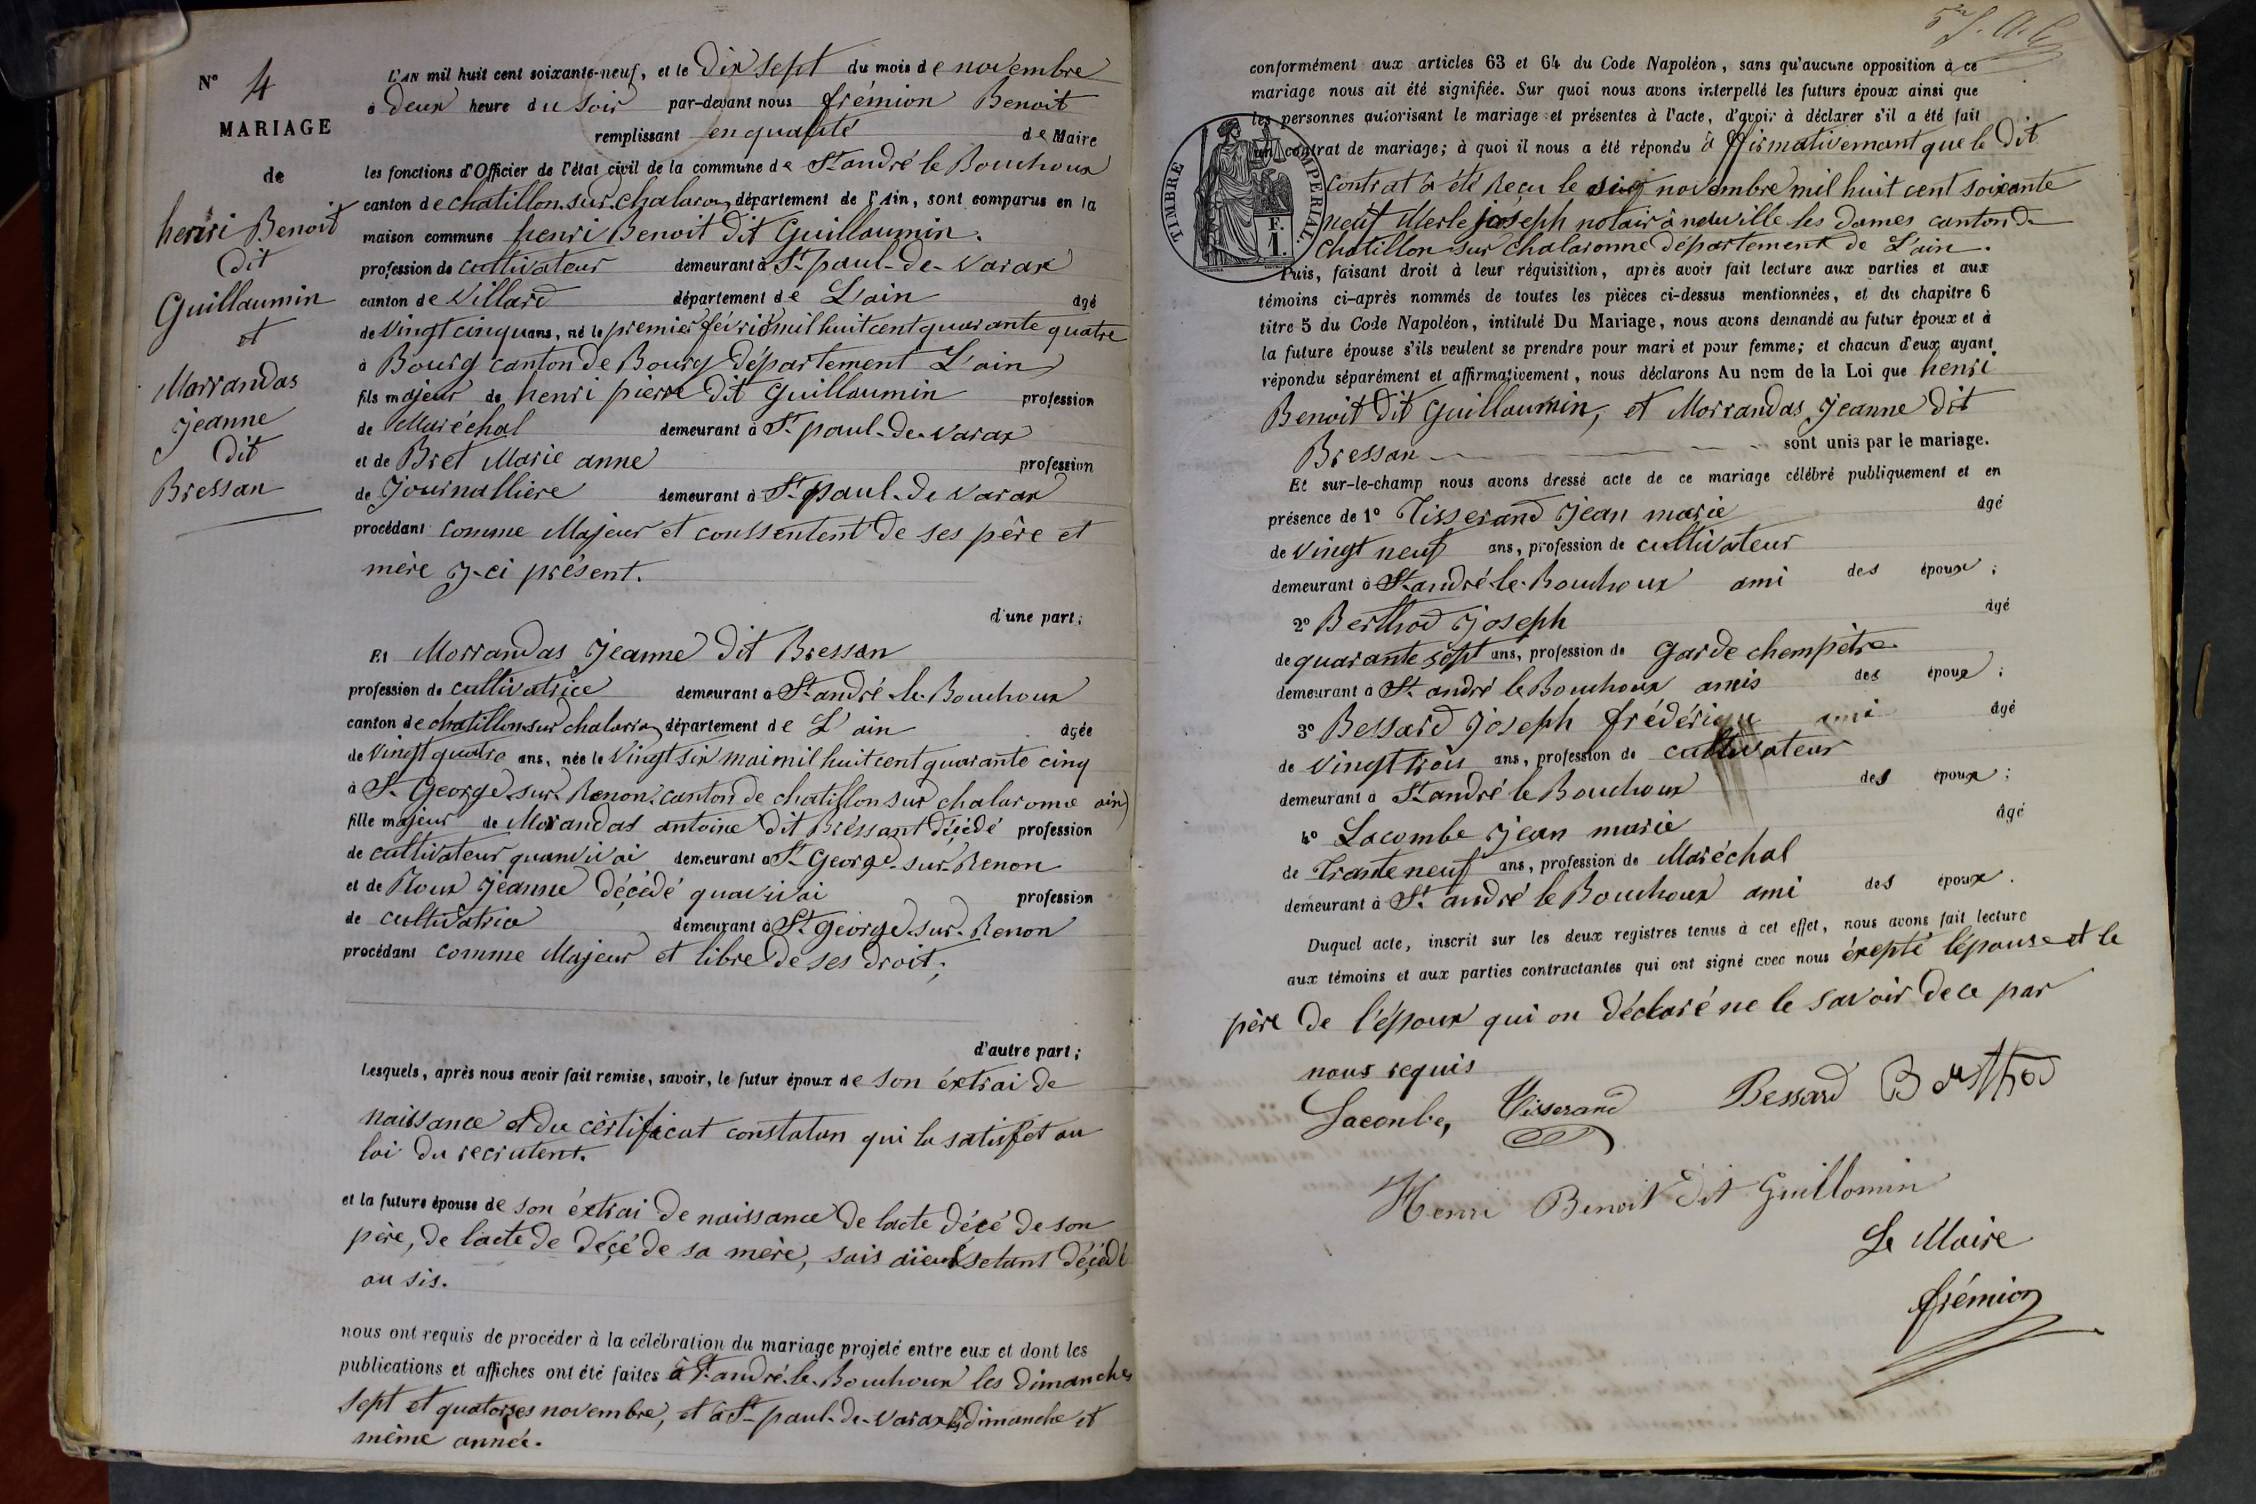 N° 4
MARIAGE
de
henri Benoit
dit
Guillaumin
et
Morrandas
jeanne
dit
Bressan
L'AN mil huit cent soixante-neuf, et le dix sept du mois de novembre
à deux heure du soir par-devant nous frémion Benoit
remplissant en qualité de Maire
les fonctions d'Officier de l'état civil de la commune de St andré le Bouchoux
canton de chatillon sur chalaron, département de l'Ain, sont comparus en la
maison commune henri Benoit dit Guillaumin.
profession de cultivateur demeurant à St paul-de-varax
canton de Villard département de L'ain âgé
de vingt cinqu ans, né le premier février mil huit cent quarante quatre
à Bourg canton de Bourg département L'ain
fils majeur de henri pierre dit Guillaumin profession
de Maréchal demeurant à St paul-de-varax
et de Bret Marie anne profession
de journallière demeurant à St paul-de varax
procédant comme Majeur et conssentent de ses père et
mère y-ci présent.
d'une part;
Et Morrandas jeanne dit Bressan
profession de cultivatrice demeurant à St andré-le-Bouchoux
canton de chatillon sur chalaron département de L'ain âgée
de vingt quatre ans, née le vingt six mai mil huit cent quarante cinq
à St George-sur-Renon canton de chatillon sur chalaronne ain)
fille majeur de Morandas antoine dit Bréssant décédé profession
de cultivateur quanvivai demeurant à St George-sur-Renon
et de Roux jeanne décédé quavivai profession
de cultivatrice demeurant à St George-sur-Renon
procédant comme Majeur et libre de ses droit;
d'autre part;
Lesquels, après nous avoir fait remise, savoir, le futur époux de son éxtrai de
naissance et du cértificat constatan qui la satisfet au
loi du recrutent.
et la future épouse de son éxtrai de naissance de lacte décé de son
père, de lacte de décé de sa mère, sais aieul setant décédé
au sis.
nous ont requis de procéder à la célébration du mariage projeté entre eux et dont les
publications et affiches ont été faites à St andré-le-Bouchoux les dimanches
sept et quatorzes novembre, et à St paul-de-varax les dimanche et
même année.
conformément aux articles 63 et 64 du Code Napoléon, sans qu'aucune opposition à ce
mariage nous ait été signifiée. Sur quoi nous avons interpellé les futurs époux ainsi que
les personnes autorisant le mariage et présentes à l'acte, d'avoir à déclarer s'il a été fait
un contrat de mariage; à quoi il nous a été répondu affirmativemant que le dit
TIMBRE IMPERIAL.
F.
1.
contrat à été reçu le six novembre mil huit cent soixante
neuf Merle joseph notair à neuville les dames canton de
Chatillon-sur chalaronne département de L'ain.
Puis, faisant droit à leur réquisition, après avoir fait lecture aux parties et aux
témoins ci-après nommés de toutes les pièces ci-dessus mentionnées, et du chapitre 6
titre 5 du Code Napoléon, intitulé Du Mariage, nous avons demandé au futur époux et à
la future épouse s'ils veulent se prendre pour mari et pour femme; et chacun d'eux ayant
répondu séparément et affirmativement, nous déclarons Au nom de la Loi que henri
Benoit dit Guillaumin, et Morrandas jeanne dit
Bressan sont unis par le mariage.
Et sur-le-champ nous avons dressé acte de ce mariage célébré publiquement et en
présence de 1° Tisserand jean marie âgé
de vingt neuf ans, profession de cultivateur
demeurant à St andré-le-Bouchoux ami des époux;
2° Berthod joseph âgé
de quarante sept ans, profession de garde chempétre
demeurant à St andré le Bouchoux amis des époux;
3° Bessard joseph frédérique ami âgé
de vingt trois ans, profession de cultivateur
demeurant à St andré le Bouchoux des époux;
4° Lacombe jean marie âgé
de Trante neuf ans, profession de Maréchal
demeurant à St andré le Bouchoux ami des époux.
Duquel acte, inscrit sur les deux registres tenus à cet effet, nous avons fait lecture
aux témoins et aux parties contractantes qui ont signé avec nous éxepté lépouse et le
père de l'époux qui on déclaré ne le savoir de ce par
nous requis
Lacombe, Tisserand Bessard Berthod
Henri Benoit dit Guillomin
Le Maire
frémion